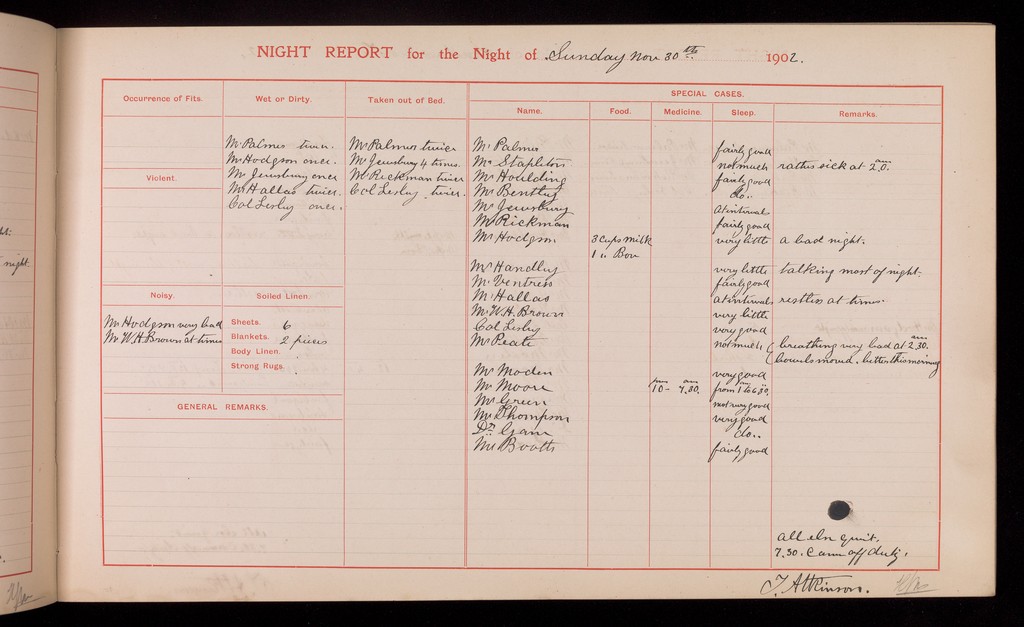 NIGHT REPORT for the Night of Sunday Nov 30th 1902.
Occurrence of Fits.
Violent.
Noisy.
Mr Hodgson very bad
Mr W.H. Brown at times
Wet or Dirty.
Mr Palmer twice.
Mr Hodgson once.
Mr Jewsbury once
Mr Hallas twice.
Col Lesley once.
Soiled Linen.
Sheets. 6
Blankets. 2 pieces
Body Linen.
Strong Rugs.
GENERAL REMARKS.
Taken out of Bed.
Mr Palmer twice
Mr Jewsbury 4 times.
Mr Rickman twice
Col Lesley twice.
SPECIAL CASES.
Name. Food. Medicine. Sleep. Remarks.
Mr Palmer fairly good
Mr Stapleton not much rather sick at 2 am
Mr Houlding fairly good
Mr Bentley do..
Mr Jewsbury at intervals
Mr Rickman fairly good
Mr Hodgson 3 cups milk very little a bad night.
1 " Bov
Mr Handley very little talking most of night.
Mr Ventress fairly good
Mr Hallas at intervals restless at times.
Mr W.H. Brown very little
Col Lesley very good
Mr Peate not much ( breathing very bad at 2.30. am
( bowels moved. better this morning
Mr Moden very good
Mr Moore 10 pm - 7.00. am from 1 to 6.30.
Mr Green not very good
Mr Thompson very good
Dr Gam do..
Mr Booth fairly good
all else quiet.
7.30. Came off duty.
T. Atkinson.